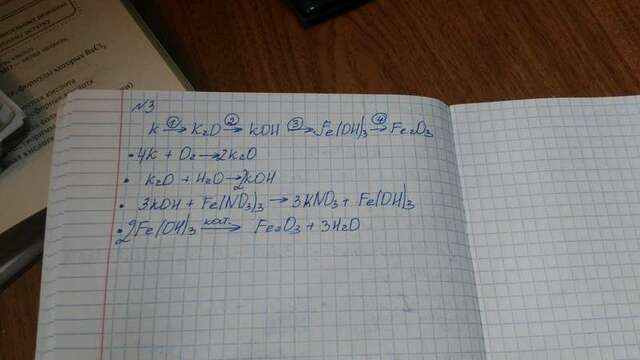 формулы которых BaCl₂
№3
K →① K₂O →② KOH →③ Fe(OH)₃ →④ Fe₂O₃
• 4K + O₂ → 2K₂O
• K₂O + H₂O → 2KOH
• 3KOH + Fe(NO₃)₃ → 3KNO₃ + Fe(OH)₃
• 2Fe(OH)₃ кат.→ Fe₂O₃ + 3H₂O